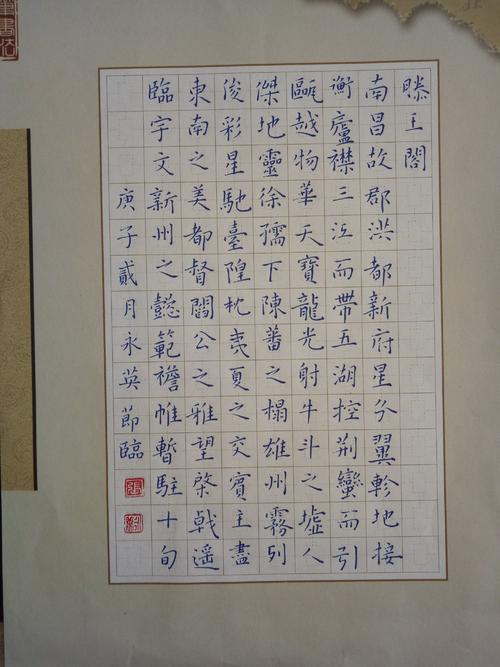 滕王閣
南昌故郡洪都新府星分翼軫地接
衡廬襟三江而帶五湖控荊蠻而引
甌越物華天寶龍光射牛斗之墟人
傑地靈徐孺下陳蕃之榻雄州霧列
俊彩星馳臺隍枕夷夏之交賓主盡
東南之美都督閻公之雅望棨戟遥
臨宇文新州之懿範襜帷暫駐十旬
庚子貳月永英節臨
張
筆書法